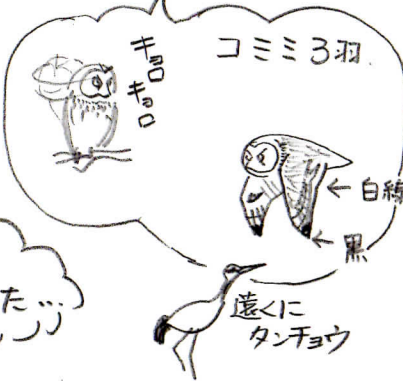 コミミ3羽.
キョロ
キョロ
←白線
←黒
遠くに
タンチョウ
た…